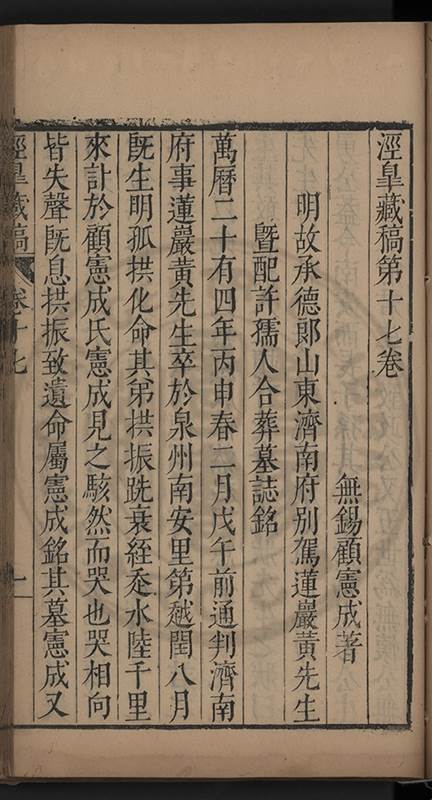 涇臯藏稿第十七卷
無錫顧憲成著
明故承德郎山東濟南府别駕蓮巖黃先生
暨配許孺人合葬墓誌銘
萬曆二十有四年丙申春二月戊午前通判濟南
府事蓮巖黃先生卒於泉州南安里第越閏八月
旣生明孤拱化命其弟拱振跣衰絰走水陸千里
來訃於顧憲成氏憲成見之駭然而哭也哭相向
皆失聲旣息拱振致遺命屬憲成銘其墓憲成又
涇臯藏稿 卷十七 一